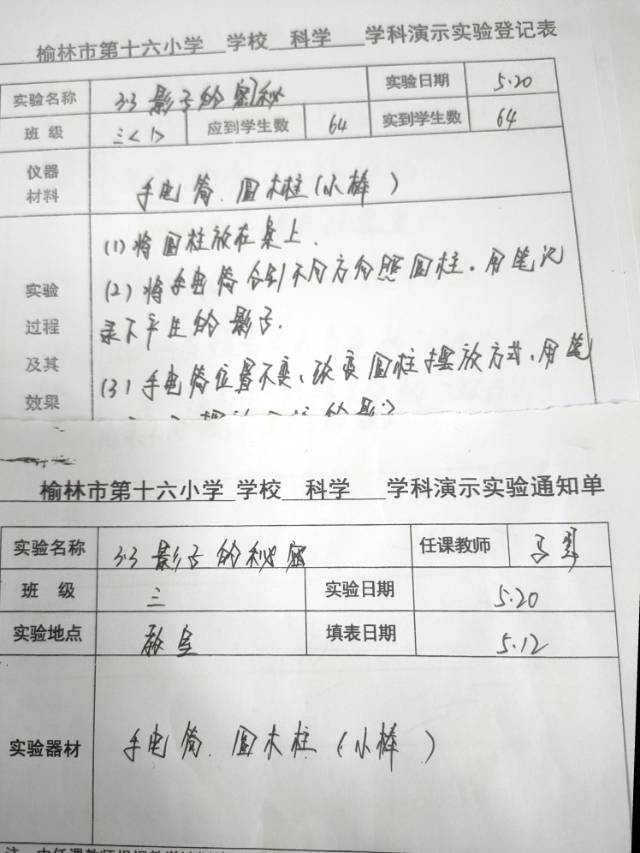 榆林市第十六小学 学校 科学 学科演示实验登记表
实验名称 3.3 影子的密秘 实验日期 5.20
班 级 三<1> 应到学生数 64 实到学生数 64
仪器材料 手电筒.圆木柱(小棒)
实验过程及其效果
(1)将圆柱放在桌上.
(2)将手电筒分别不同方向照圆柱.用笔记
录下产生的影子.
(3)手电筒位置不变、改变圆柱摆放方式、用笔
榆林市第十六小学 学校 科学 学科演示实验通知单
实验名称 3.3 影子的秘密 任课教师 马
班 级 三 实验日期 5.20
实验地点 教室 填表日期 5.12
实验器材 手电筒.圆木柱(小棒)